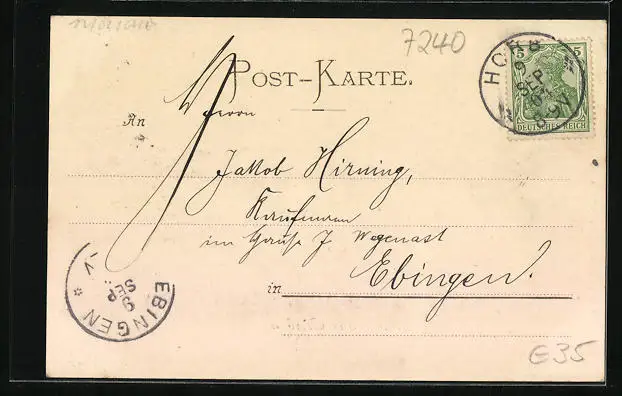 7240
POST-KARTE.
HORB
9 SEP
5 5
DEUTSCHES REICH
An
Herrn
Jakob Hirning,
Kaufmann
im Hause J. Wegenast
in Ebingen.
EBINGEN
9
SEP
€35